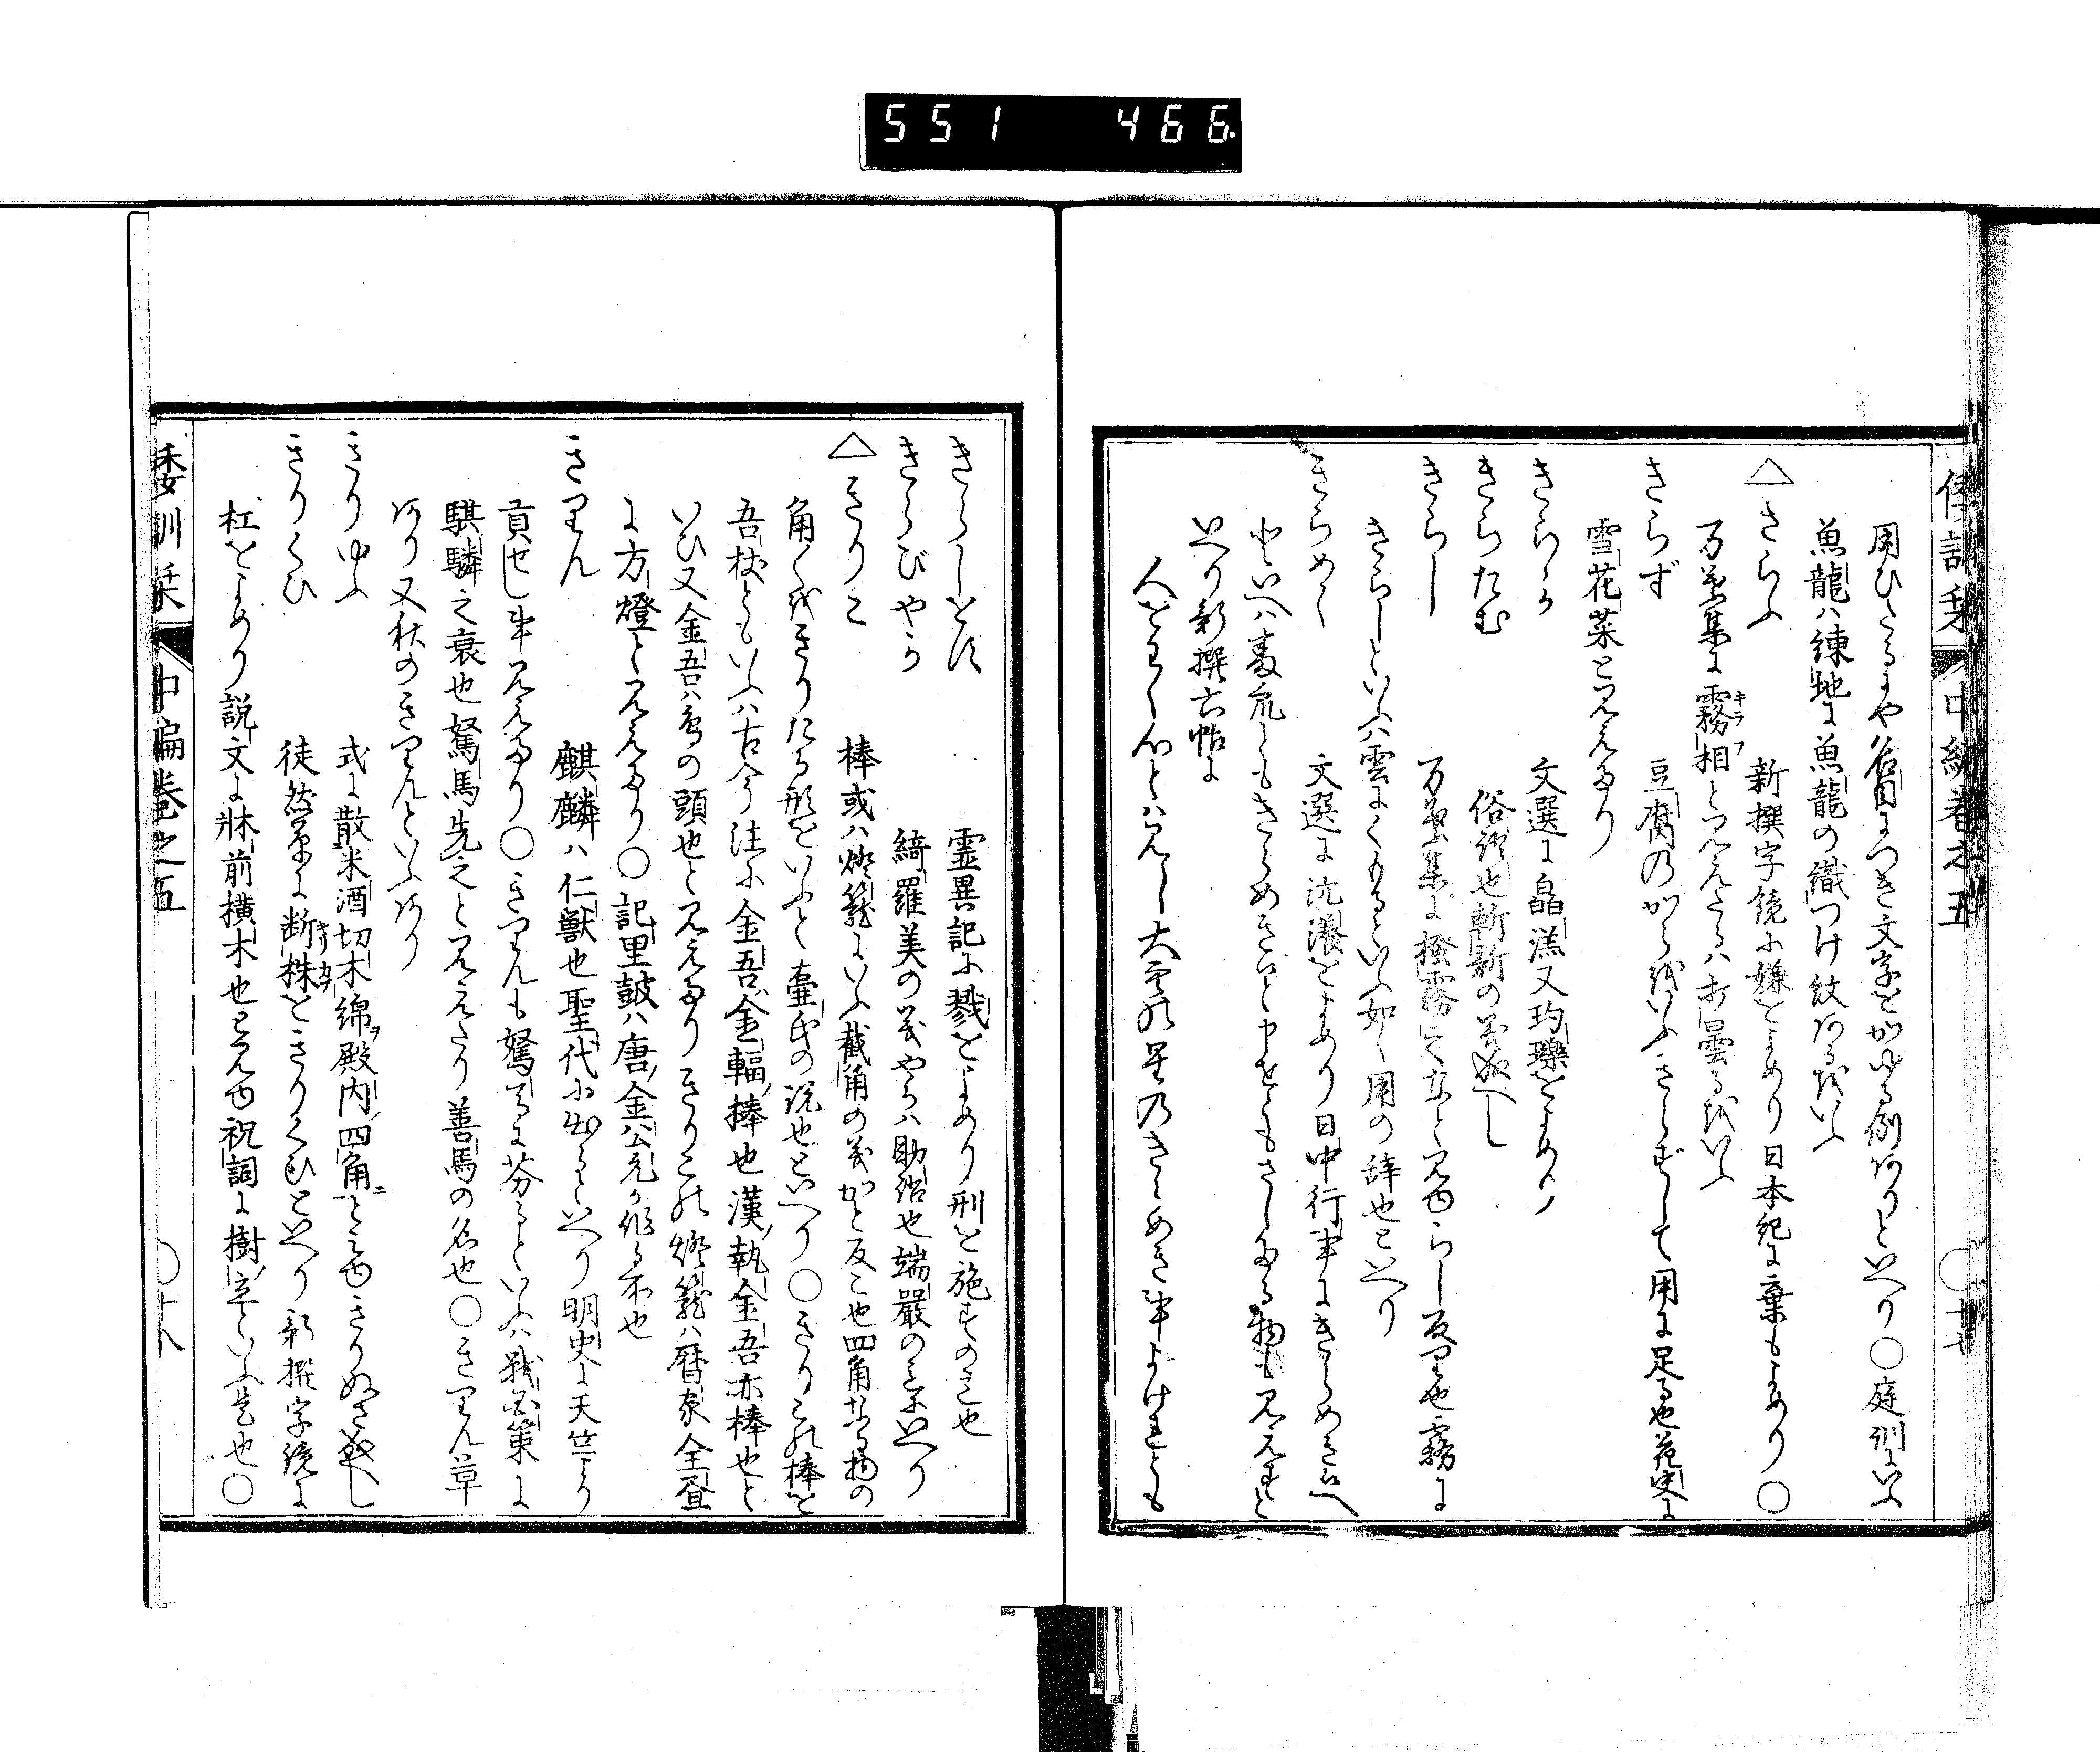 551 466
倭訓栞 中編巻之五 〇十七
用ひたるにや名目につき文字をかゆる例ありといへり〇庭訓にいふ
魚龍ハ練地に魚龍の織つけ紋あるをいふ
△きらふ 新撰字鏡に嫌をよめり日本紀に棄もよめり〇
万葉集に霧相とみえたるハ打曇るをいふ
キラフ
きらず 豆腐のからをいふきらずして用に足る也
雪花菜とみえたり
きらゝか 文選に皛溔又玓瓅をよめり
きらたむ 俗語也斬新の義成へし
きらし 万葉集に霧にてなとみゆらし反り也霧に
きらしといふハ雲にくもるといふ如く用の辞也といへり
きらめく 文選に沆瀁をよめり日中行事にきらめき
といへハともきらめきさしたる物もみえすと
いへり新撰六帖に
人をわく心とハみし大空の星のきらめき事よけれとも
きらしをす 霊異記に戮をよめり刑を施すの意也
きらびやか 綺羅美の義やかハ助語也端厳の意にいへり
△きりこ 棒或ハ燈籠にいふ截角の義かと反こ也四角なる物の
角々をきりたる形をいふと壷氏の説也といへり〇きりこの棒を
吾杖ともいふハ古今注に金吾ハ金輻棒也漢ノ執金吾亦棒也と
いひ又金吾ハ鳥の頭也とみえたりきりこの燈籠ハ暦家全書
に方燈とみえたり〇記里鼓ハ唐ノ金公亮か作る所也
きりん 麒麟ハ仁獣也聖代に出るといへり明史に天竺より
貢せし事みえたり〇きりんも駑馬に劣るといふハ戦国策に
騏驎之衰也駑馬先之とみえたり善馬の名也〇きりん草
あり又秋のきりんといふあり
きりゆふ 式に散米酒切木綿ヲ殿内ノ四角ニとみゆきりぬさ成へし
きりくひ 徒然草に断株をきりくひといへり新撰字鏡に
きりカブ
杠をよめり説文に牀前横木也とみゆ祝詞に樹ノ立といふ是也〇
倭訓栞 中編巻之五 〇十八